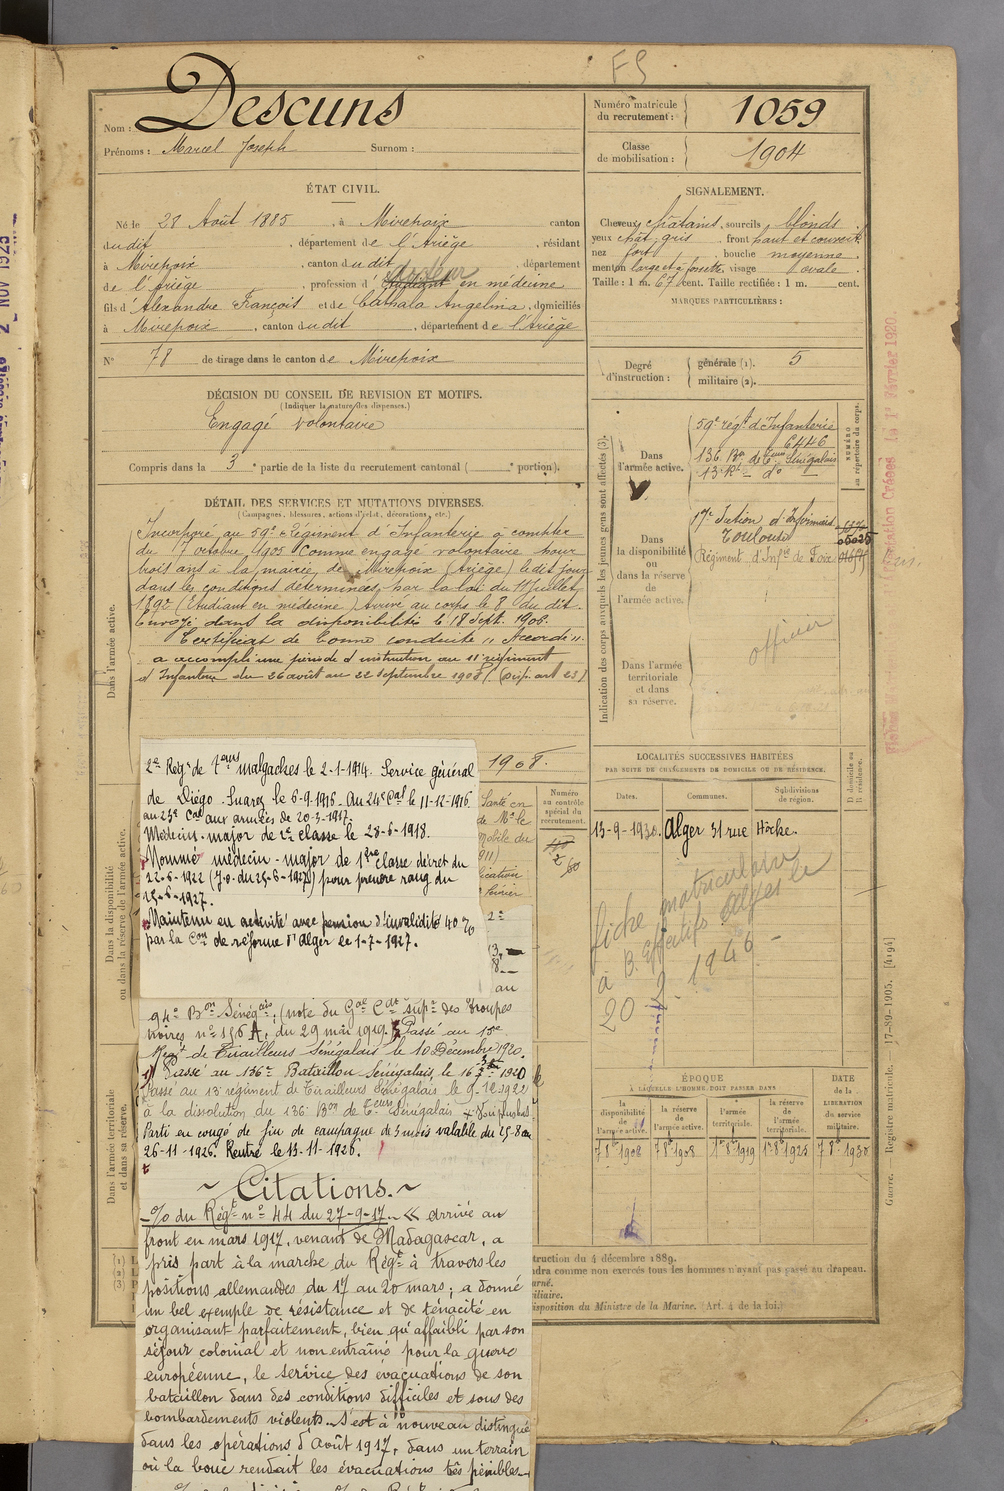 FS
Nom : Descuns
Prénoms : Marcel Joseph Surnom :
Numéro matricule du recrutement : 1059
Classe de mobilisation : 1904
ÉTAT CIVIL.
Né le 28 Août 1885, à Mirepoix canton
dudit, département de l'Ariège, résidant
à Mirepoix, canton dudit, département
de l'Ariège, profession d'Etudiant en médecine
docteur
fils d'Alexandre François et de Cathala Angelina, domiciliés
à Mirepoix, canton dudit, département de l'Ariège
N° 78 de tirage dans le canton de Mirepoix
SIGNALEMENT.
Cheveux châtains, sourcils blonds
yeux chât. gris, front haut et couvert.
nez fort, bouche moyenne.
menton large et à fossette, visage ovale.
Taille : 1 m. 67 cent. Taille rectifiée : 1 m. cent.
MARQUES PARTICULIÈRES :
Degré d'instruction :
générale (1). 5
militaire (2).
DÉCISION DU CONSEIL DE REVISION ET MOTIFS.
(Indiquer la nature des dispenses.)
Engagé volontaire
Compris dans la 3e partie de la liste du recrutement cantonal ( e portion).
DÉTAIL DES SERVICES ET MUTATIONS DIVERSES.
(Campagnes, blessures, actions d'éclat, décorations, etc.)
Incorporé au 59e Régiment d'Infanterie à compter
du 7 octobre 1905 comme engagé volontaire pour
trois ans à la mairie de Mirepoix (Ariège) le dit jour
dans les conditions déterminées par la loi du 11 Juillet
1892 (Etudiant en médecine) Arrivé au corps le 8 du dit.
Envoyé dans la disponibilité le 18 Sept. 1906.
Certificat de bonne conduite "Accordé"
a accompli une période d'instruction au 11e régiment
d'Infanterie du 26 août au 22 Septembre 1908 (Disp. art 23)
Dans l'armée active.
Dans la disponibilité ou dans la réserve de l'armée active.
Dans l'armée territoriale et dans sa réserve.
1908.
2e Regt de Teurs malgaches le 2-1-1914. Service général
de Diégo-Suarez le 6-9-1916. Au 24e Cal le 11-12-1916
au 23e Cal aux armées le 20-3-1917.
Médecin-major de 2e classe le 28-6-1918.
Nommé médecin-major de 1ère classe décret du
22-6-1922 (J.O. du 25-6-1927) pour prendre rang du
25-6-1927.
Maintenu en activité avec pension d'invalidité 40 %
par la Con de réforme d'Alger le 1-7-1927.
Santé en
mobile du
911)
au
94e Bon Sénégais, (note du Gal Cdt supr des troupes
noires n° 156 A. du 29 mai 1919. Passé au 15e
Regt de Tirailleurs Sénégalais le 10 Décembre 1920.
Passé au 136e Bataillon Sénégalais le 16 1920
Passé au 13e régiment de Tirailleurs Sénégalais le 9-12-1922
à la dissolution du 136e Bon de Teurs Sénégalais + Voir plus bas
Parti en congé de fin de campagne de 3 mois valable du 25-8 au
26-11-1926. Rentré le 13-11-1926.
~ Citations. ~
O/ du Régt n° 44 du 27-9-17. « arrivé au
front en mars 1917, venant de Madagascar, a
pris part à la marche du Régt à travers les
positions allemandes du 17 au 20 mars ; a donné
un bel exemple de résistance et de ténacité en
organisant parfaitement, bien qu'affaibli par son
séjour colonial et non entraîné pour la guerre
européenne, le service des évacuations de son
bataillon dans des conditions difficiles et sous des
bombardements violents. S'est à nouveau distingué
dans les opérations d'août 1917, dans un terrain
où la boue rendait les évacuations très pénibles.
Indication des corps auxquels les jeunes gens sont affectés (3).
NUMÉRO au répertoire du corps.
Dans l'armée active.
59e régt d'Infanterie
6446
136 Bn de Teurs Sénégalais
13e Rt do
Dans la disponibilité ou dans la réserve de l'armée active.
17e Section d'Infirmiers
Toulouse
05025
Régiment d'Infie de Foix
Dans l'armée territoriale et dans sa réserve.
officier
Créées le 1er Février 1920.
2 NOV 1925
LOCALITÉS SUCCESSIVES HABITÉES
PAR SUITE DE CHANGEMENTS DE DOMICILE OU DE RÉSIDENCE.
Numéro au contrôle spécial du recrutement.
Dates. Communes. Subdivisions de région. D domicile ou R résidence.
13-9-1930. Alger 31 rue Hoche.
fiche matriculaire
à B. Effectifs Alger le
20 1946
ÉPOQUE
À LAQUELLE L'HOMME DOIT PASSER DANS
DATE de la LIBÉRATION du service militaire.
la disponibilité de l'armée active.
la réserve de l'armée active.
l'armée territoriale.
la réserve de l'armée territoriale.
7 8bre 1908
7 8bre 1908
1er 8bre 1919
1er 8bre 1925
7 8bre 1930
truction du 4 décembre 1889.
dra comme non exercés tous les hommes n'ayant pas passé au drapeau.
urné.
iliaire.
isposition du Ministre de la Marine. (Art. 4 de la loi.)
Guerre. — Registre matricule. — 17-89-1905. [4194]